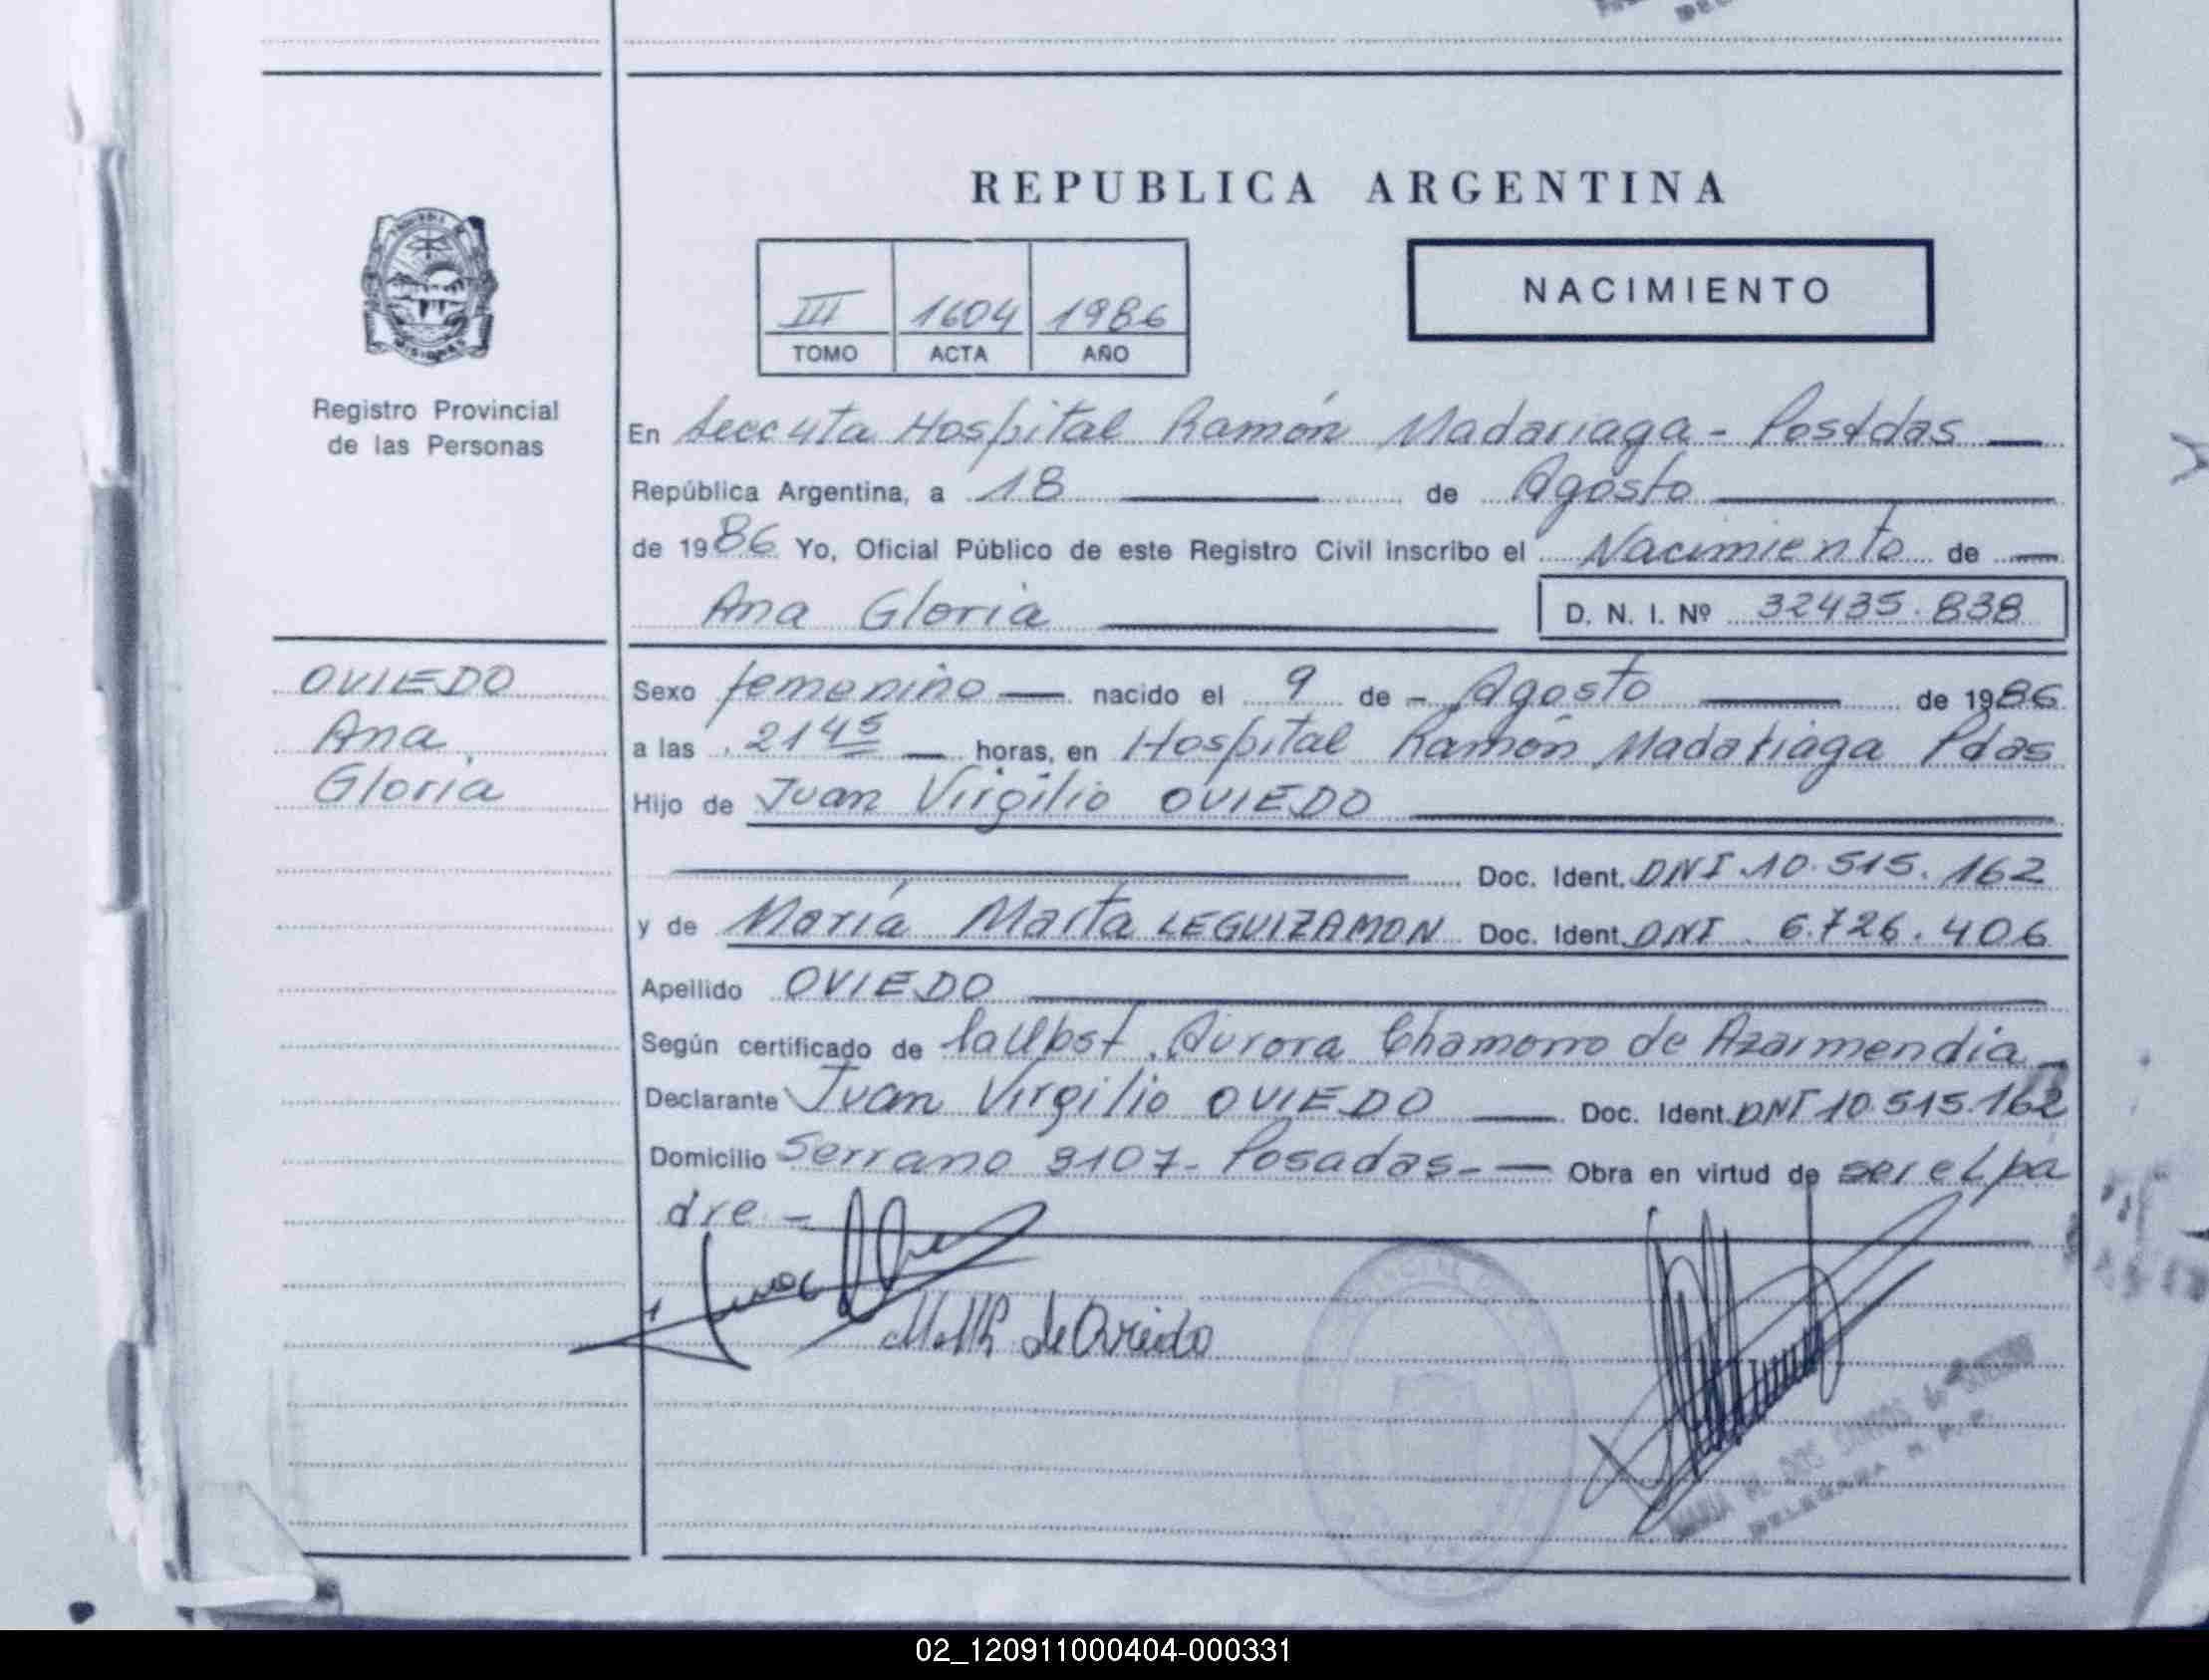 REPUBLICA ARGENTINA
III 1604 1986
TOMO ACTA AÑO
NACIMIENTO
Registro Provincial
de las Personas
En Hospital Ramón Madariaga - Posadas
República Argentina, a 18 de Agosto
de 1986 Yo, Oficial Público de este Registro Civil inscribo el Nacimiento de
Ana Gloria D. N. I. Nº 32435.838
OVIEDO
Ana
Gloria
Sexo femenino nacido el 9 de - Agosto de 1986
a las 21 45 horas, en Hospital Ramón Madariaga Pdas
Hijo de Juan Virgilio OVIEDO
Doc. Ident. DNI 10.515.162
y de María Marta LEGUIZAMON Doc. Ident. DNI 6.726.406
Apellido OVIEDO
Según certificado de Aurora Chamorro de Azarmendia
Declarante Juan Virgilio OVIEDO Doc. Ident. DNI 10.515.162
Domicilio Serrano 3107- Posadas- Obra en virtud de ser el pa
dre -
de Oviedo
MARIA DOS SANTOS de
DELEGADA
02_120911000404-000331